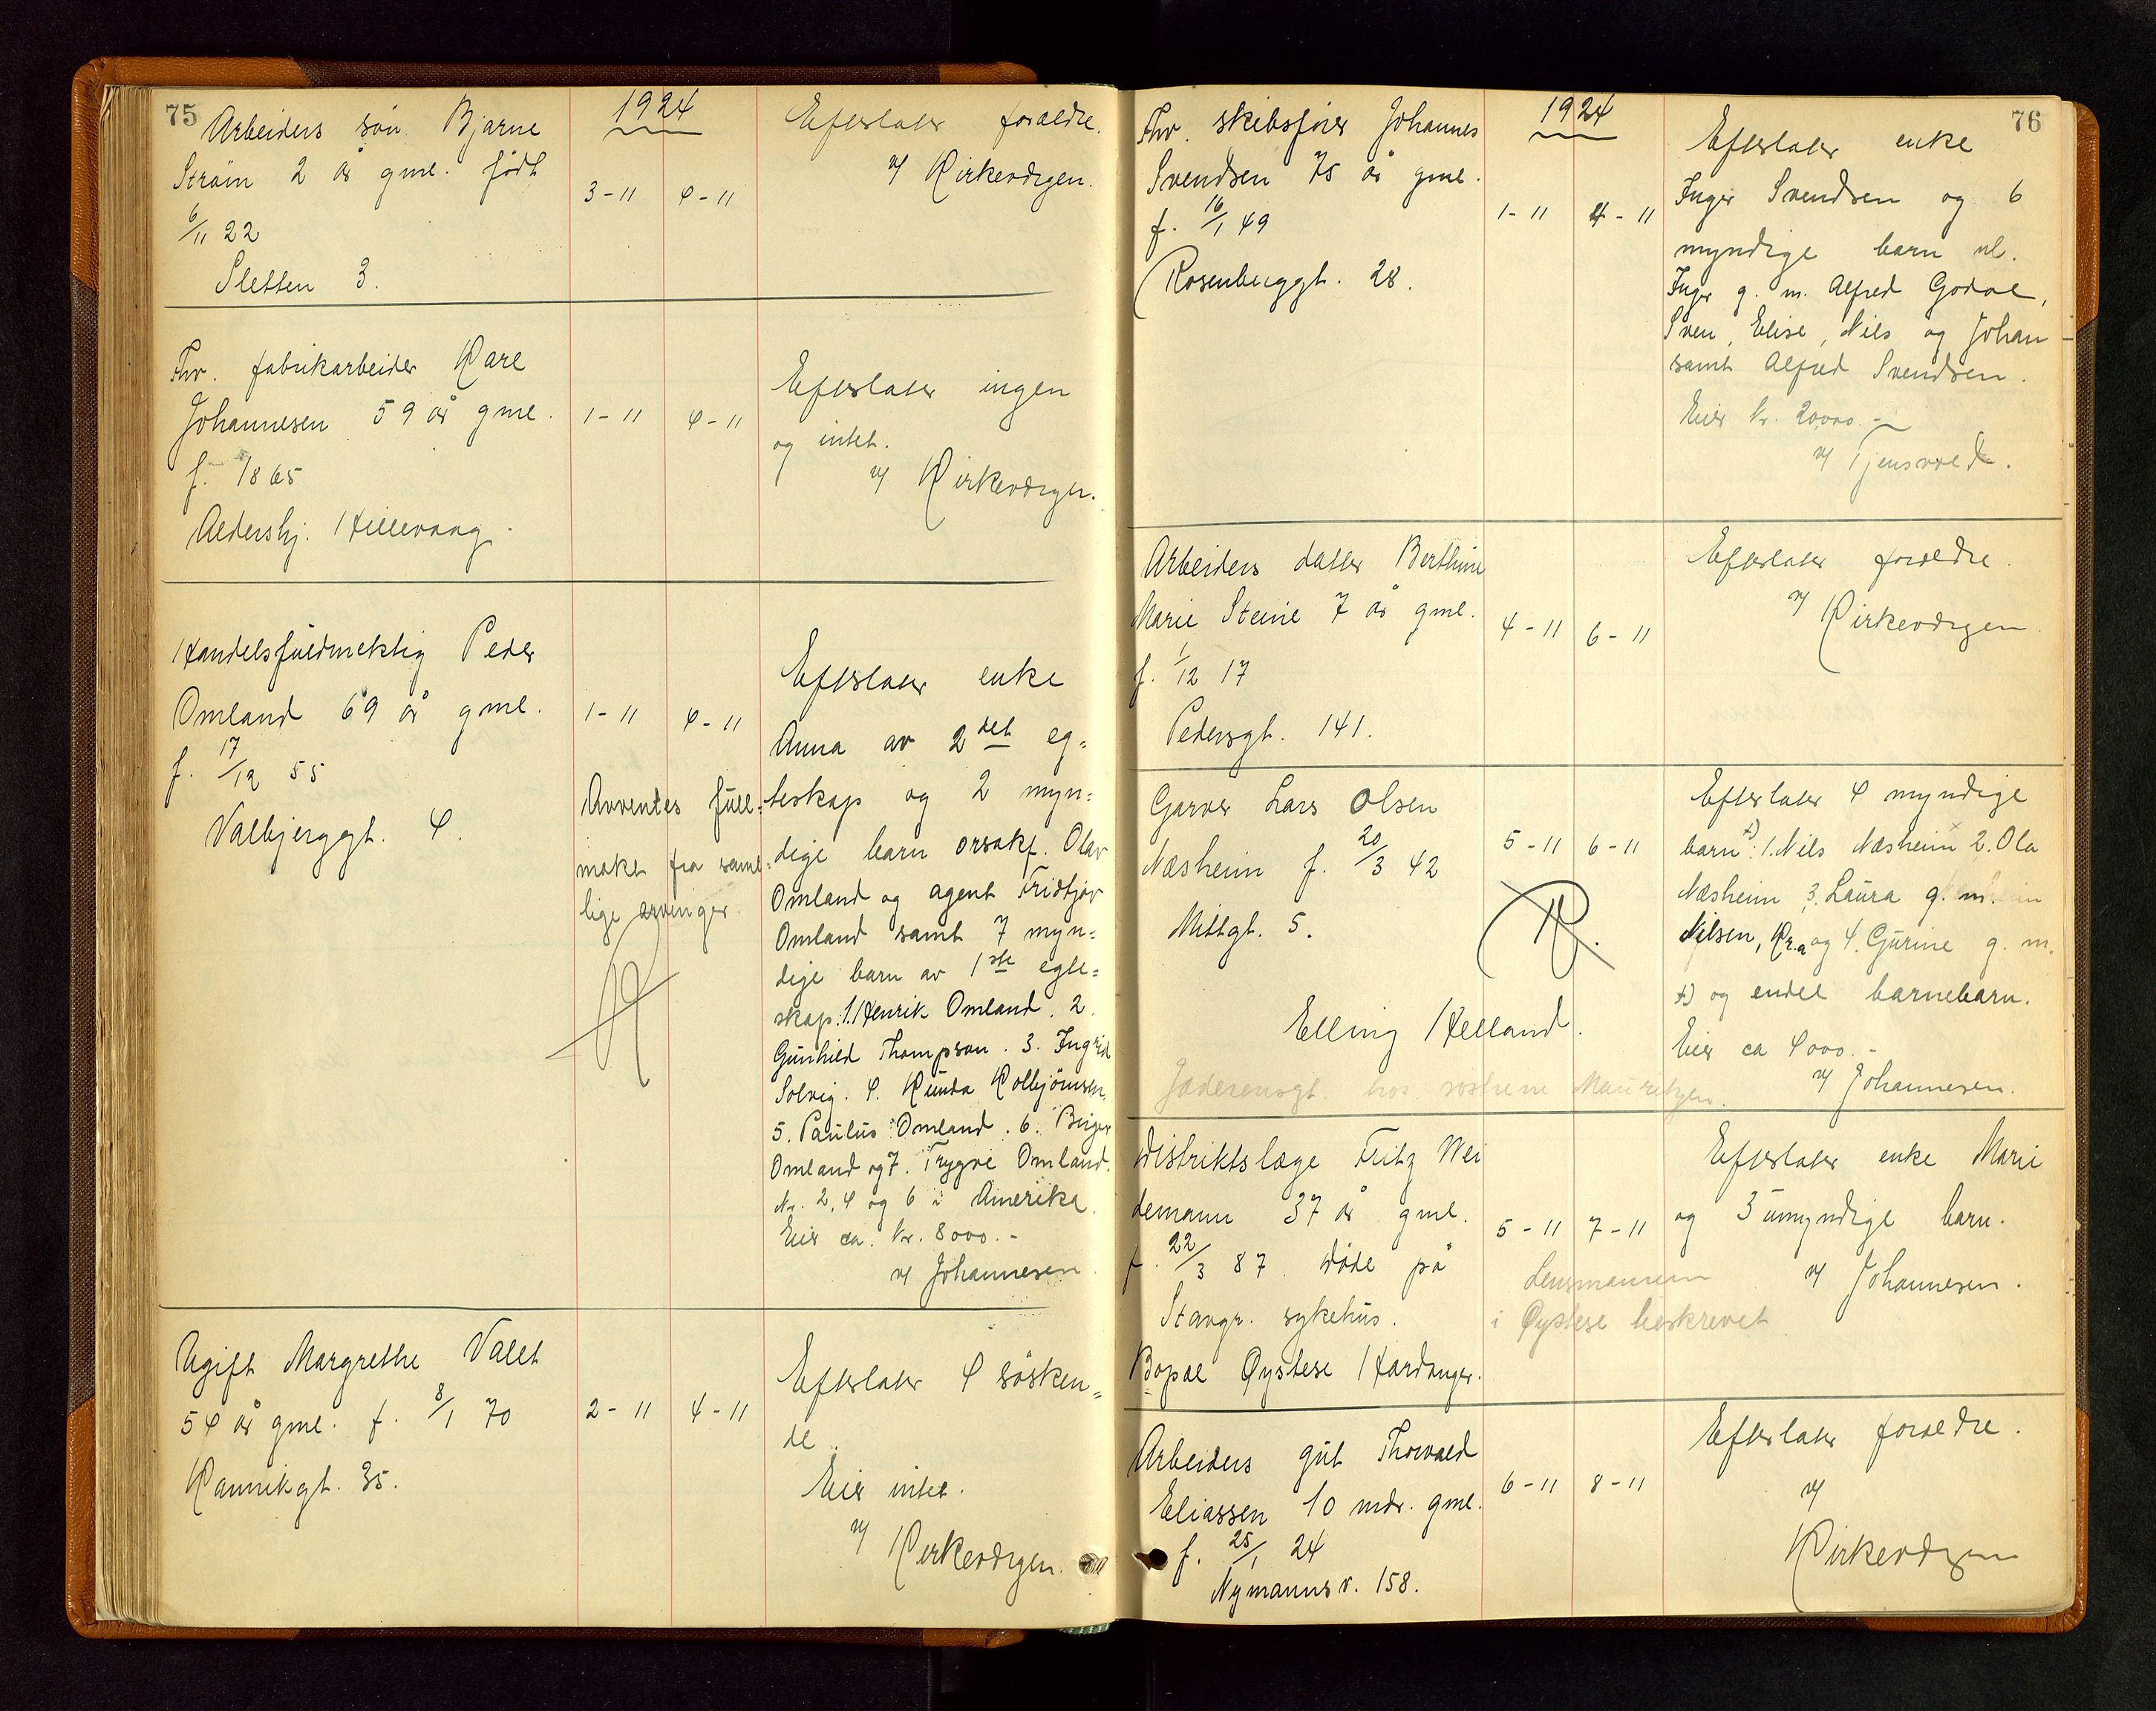 75
1924
Arbeiders søn Bjarne
Strøm 2 år gml. født
6/11 22
Sletten 3.
3-11 4-11
Efterlater foræld​re.
v/ Kirkeværgen.
Fhv. fabrikarbeider Kare
Johannesen 59 år gml.
f. 1865
Aldershj. Hillevaag.
1-11 4-11
Efterlater ingen
og intet.
v/ Kirkeværgen.
Handelsfuldmektig Peder
Omland 69 år gml.
f. 17/12 55
Valbjerggt. 4.
1-11 4-11
Avventes full=
makt fra samt=
lige arvinger.
Efterlater enke
Anna av 2det eg=
teskap og 2 myn=
dige barn orsakf. Olav
Omland og agent Fridtjov
Omland samt 7 myn=
dige barn av 1ste egte=
skap: 1. Henrik Omland. 2.
Gunhild Thompson. 3. Ingrid
Solvig. 4. Kunda Kolbjørnsen.
5. Paulus Omland. 6. Birger
Omland og 7. Trygve Omland.
Nr. 2, 4 og 6 i Amerika.
Eier ca. kr. 8000.-
v/ Johannesen
Ugift Margrethe Valet
54 år gml. f. 8/1 70
Kannikgt. 35.
2-11 4-11
Efterlater 4 søsken=
de.
Eier intet.
v/ Kirkeværgen.
76
1924
Fhv. skibsfører Johannes
Svendsen 75 år gml.
f. 16/1 49
Rosenberggt. 28.
1-11 4-11
Efterlater enke
Inger Svendsen og 6
myndige barn nl.
Inger g. m. Alfred Godal,
Sven, Elise, Nils og Johan
samt Alfred Svendsen.
Eier kr. 20,000.-
v/ Tjensvold.
Arbeiders datter Berthine
Marie Steine 7 år gml.
f. 1/12 17
Pedersgt. 141.
4-11 6-11
Efterlater forældre.
v/ Kirkeværgen
Garver Lars Olsen
Næsheim f. 20/3 42
Mittgt. 5.
5-11 6-11
Elling Helland.
Jæderensgt. hos søstrene Mauritzen.
Efterlater 4 myndige
barn x): 1. Nils Næsheim 2. Ola
Næsheim 3. Laura g. m.
Nilsen, Kr.a og 4. Gurine g. m.
x) og endel barnebarn.
Eier ca 4000.-
v/ Johannesen.
Distriktslæge Fritz Wei
demann 37 år gml.
f. 22/3 87. Døde på
Stavgr. sykehus.
Bopæl Øystese Hardanger.
5-11 7-11
Lensmannen
i Øystese beskrevet
Efterlater enke Marie
og 3 umyndige barn.
v/ Johannesen.
Arbeiders gut Thorvald
Eliassen 10 mdr. gml.
f. 25/1 24
Nymannsv. 158.
6-11 8-11
Efterlater forældre.
v/
Kirkeværgen